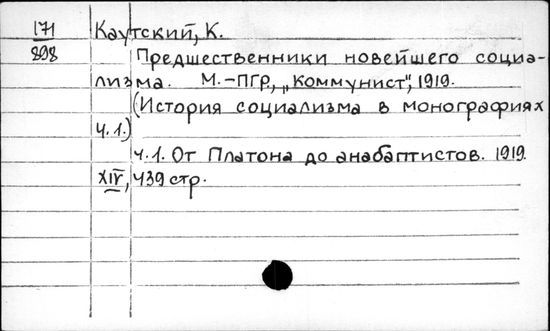 171
898
Каутский, К.
Предшественники новейшего социа-
лизма. М.-Пгр., „Коммунист“, 1919.
(История социализма в монографиях
ч.1.)
ч.1. От Платона до анабаптистов. 1919.
XIV, 439 стр.